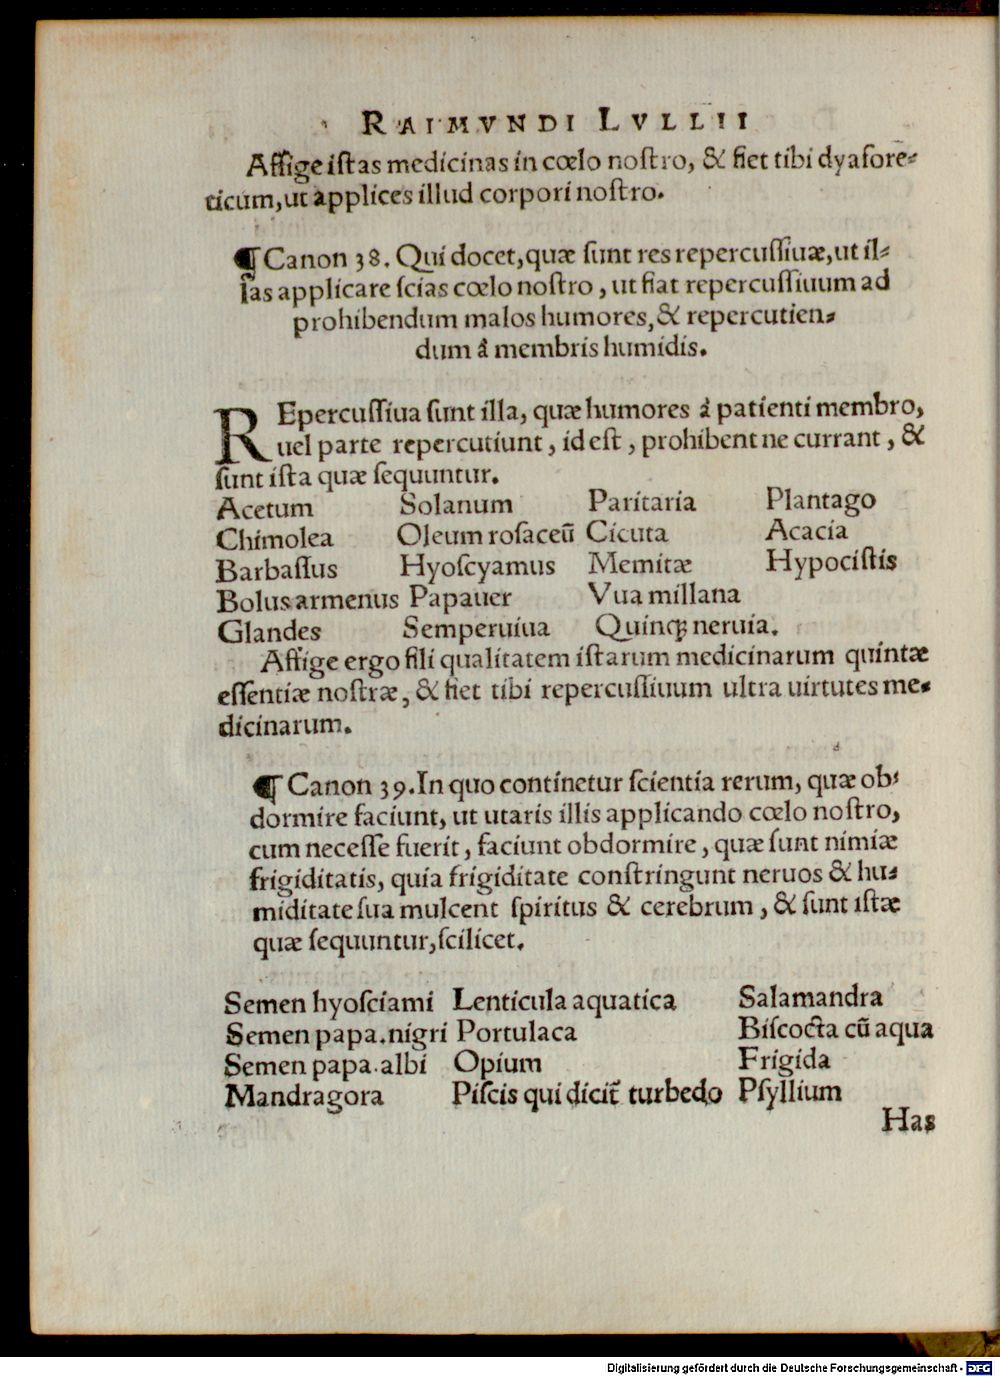 RAIMVNDI LVLLII
Affige iſtas medicinas in cœlo noſtro, & fiet tibi dyafore-
ticum, ut applices illud corpori noſtro.
¶ Canon 38. Qui docet, quæ ſunt res repercuſſiuæ, ut il-
las applicare ſcias cœlo noſtro, ut fiat repercuſſiuum ad
prohibendum malos humores, & repercutien-
dum à membris humidis.
REpercuſſiua ſunt illa, quæ humores à patienti membro,
uel parte repercutiunt, id eſt, prohibent ne currant, &
ſunt iſta quæ ſequuntur.
Acetum Solanum Paritaria Plantago
Chimolea Oleum roſaceũ Cicuta Acacia
Barbaſſus Hyoſcyamus Memitæ Hypociſtis
Bolus armenus Papauer Vua millana
Glandes Semperuiua Quinq; neruia.
Affige ergo fili qualitatem iſtarum medicinarum quintæ
eſſentiæ noſtræ, & fiet tibi repercuſſiuum ultra uirtutes me-
dicinarum.
¶ Canon 39. In quo continetur ſcientia rerum, quæ ob-
dormire faciunt, ut utaris illis applicando cœlo noſtro,
cum neceſſe fuerit, faciunt obdormire, quæ ſunt nimiæ
frigiditatis, quia frigiditate conſtringunt neruos & hu-
miditate ſua mulcent ſpiritus & cerebrum, & ſunt iſtæ
quæ ſequuntur, ſcilicet.
Semen hyoſciami Lenticula aquatica Salamandra
Semen papa. nigri Portulaca Biſcocta cũ aqua
Semen papa. albi Opium Frigida
Mandragora Piſcis qui dicit̃ turbedo Pſyllium
Has
Digitalisierung gefördert durch die Deutsche Forschungsgemeinschaft - DFG